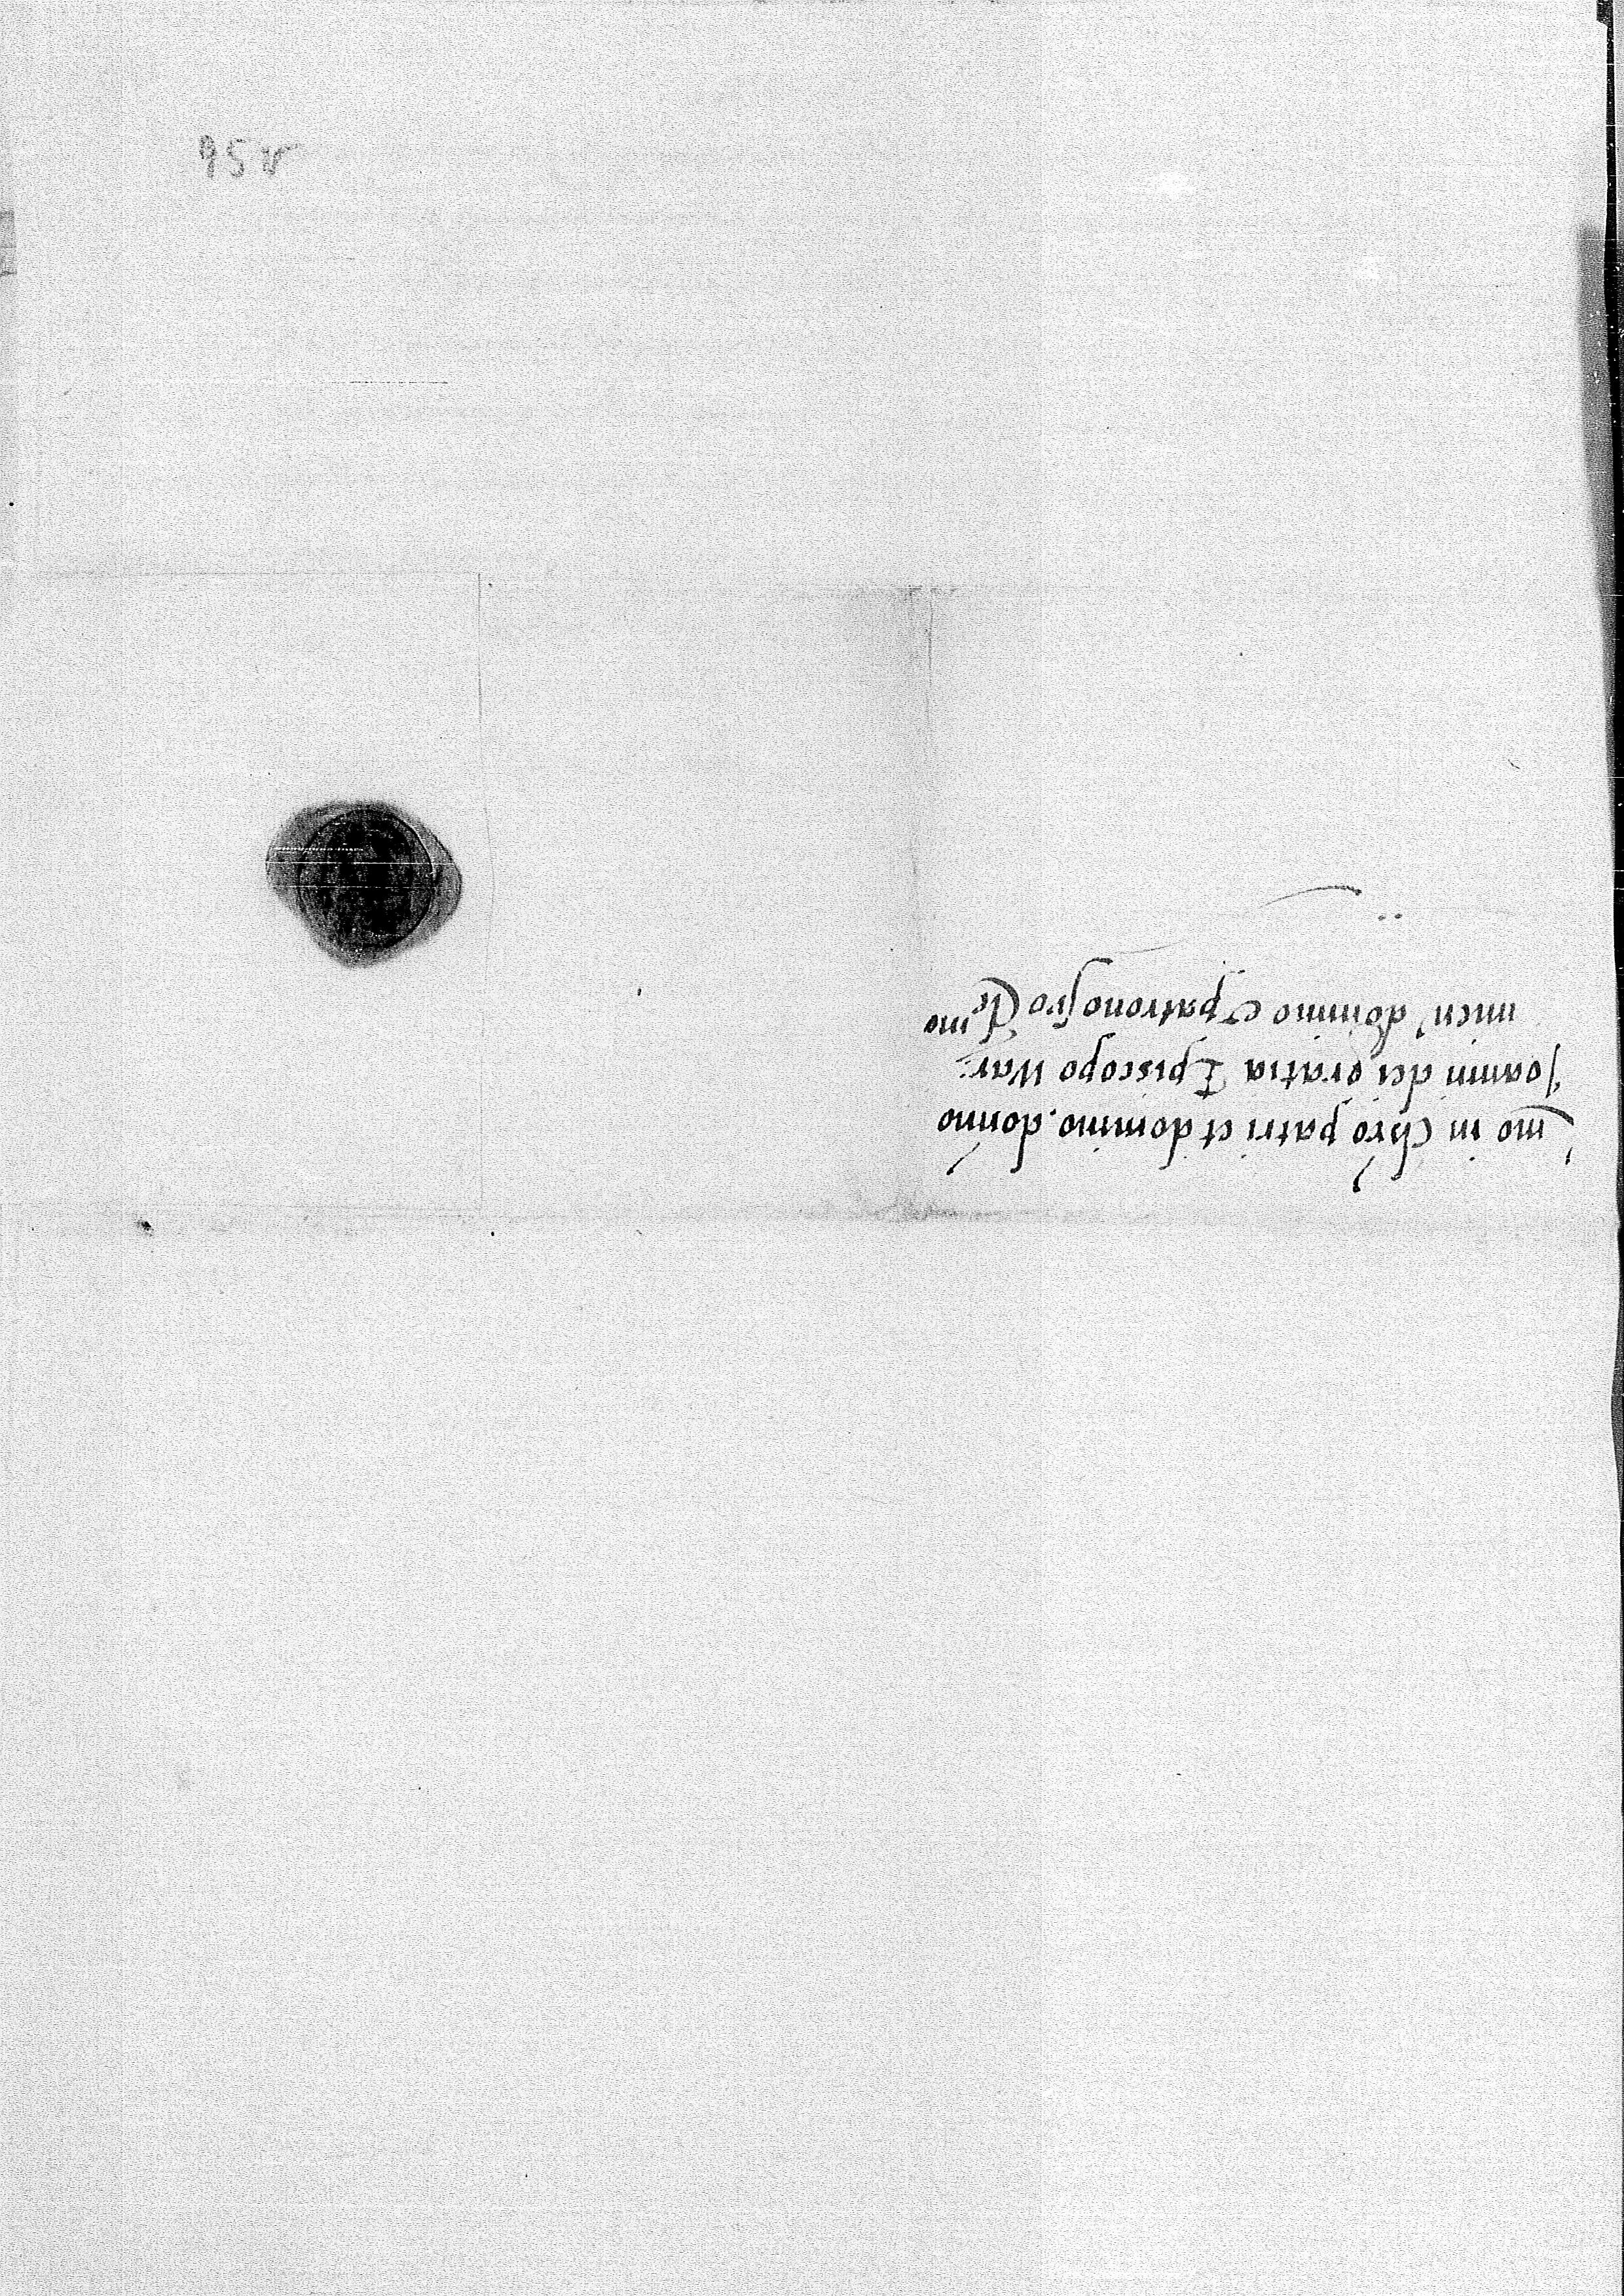 95v
mo in Chro patri et domino. domno
Joanni dei gratia Episcopo War:
mien. domino et patrono suo Cle mo